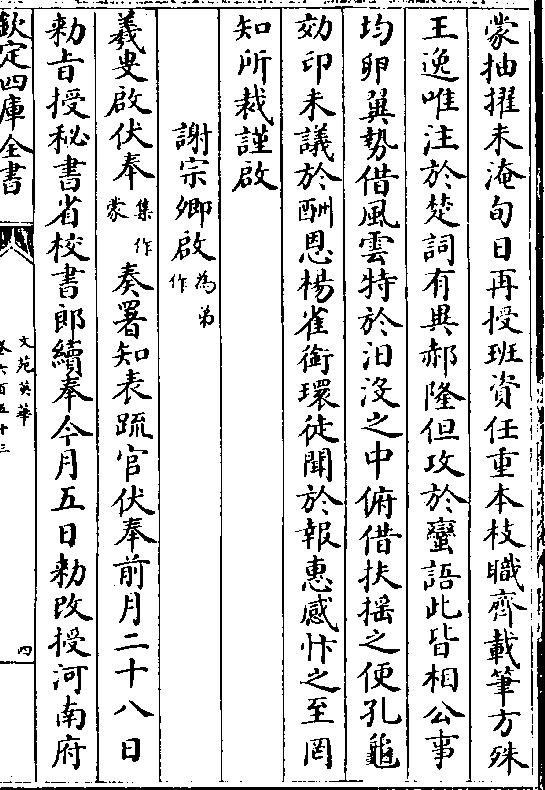 蒙抽擢未淹旬日再授班資任重本枝職齊載筆方殊
王逸唯注於楚詞有異郝隆但攻於蠻語此皆相公事
均卵翼勢借風雲特於汨没之中俯借扶揺之便孔龜
効印未議於酬恩楊雀銜環徒聞於報惠感忭之至罔
知所裁謹啟
謝宗卿啟為弟作
羲叟啟伏奉集作蒙奏署知表疏官伏奉前月二十八日
勅旨授秘書省校書郎續奉今月五日勅改授河南府
欽定四庫全書
文苑英華
卷六百五十三
四